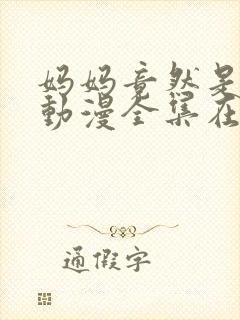 妈妈竟然是
動漫全集在
通假字